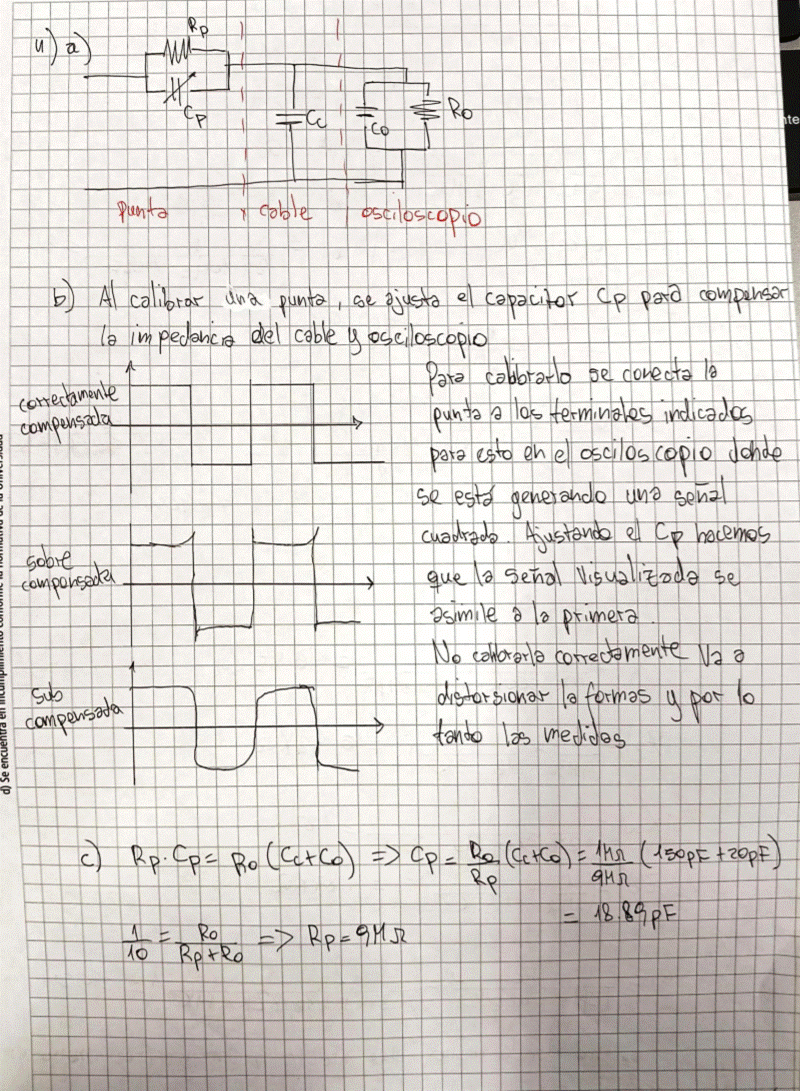 4) a)
Rp
Cp
Cc
Co
Ro
punta cable osciloscopio
b) Al calibrar una punta, se ajusta el capacitor Cp para compensar
la impedancia del cable y osciloscopio
correctamente
compensada
Para calibrarlo se conecta la
punta a los terminales indicados
para esto en el osciloscopio donde
se está generando una señal
cuadrada. Ajustando el Cp hacemos
que la señal visualizada se
asimile a la primera.
No calibrarla correctamente va a
distorsionar la formas y por lo
tando las medidas
sobre
compensada
sub
compensada
c) Rp · Cp = Ro (Cc+Co) => Cp = Ro/Rp (Cc+Co) = 1MΩ/9MΩ (150pF + 20pF)
= 18.89pF
1/10 = Ro/(Rp+Ro) => Rp = 9MΩ
d) Se encuentra en incumplimiento conforme la normativa de la Universidad